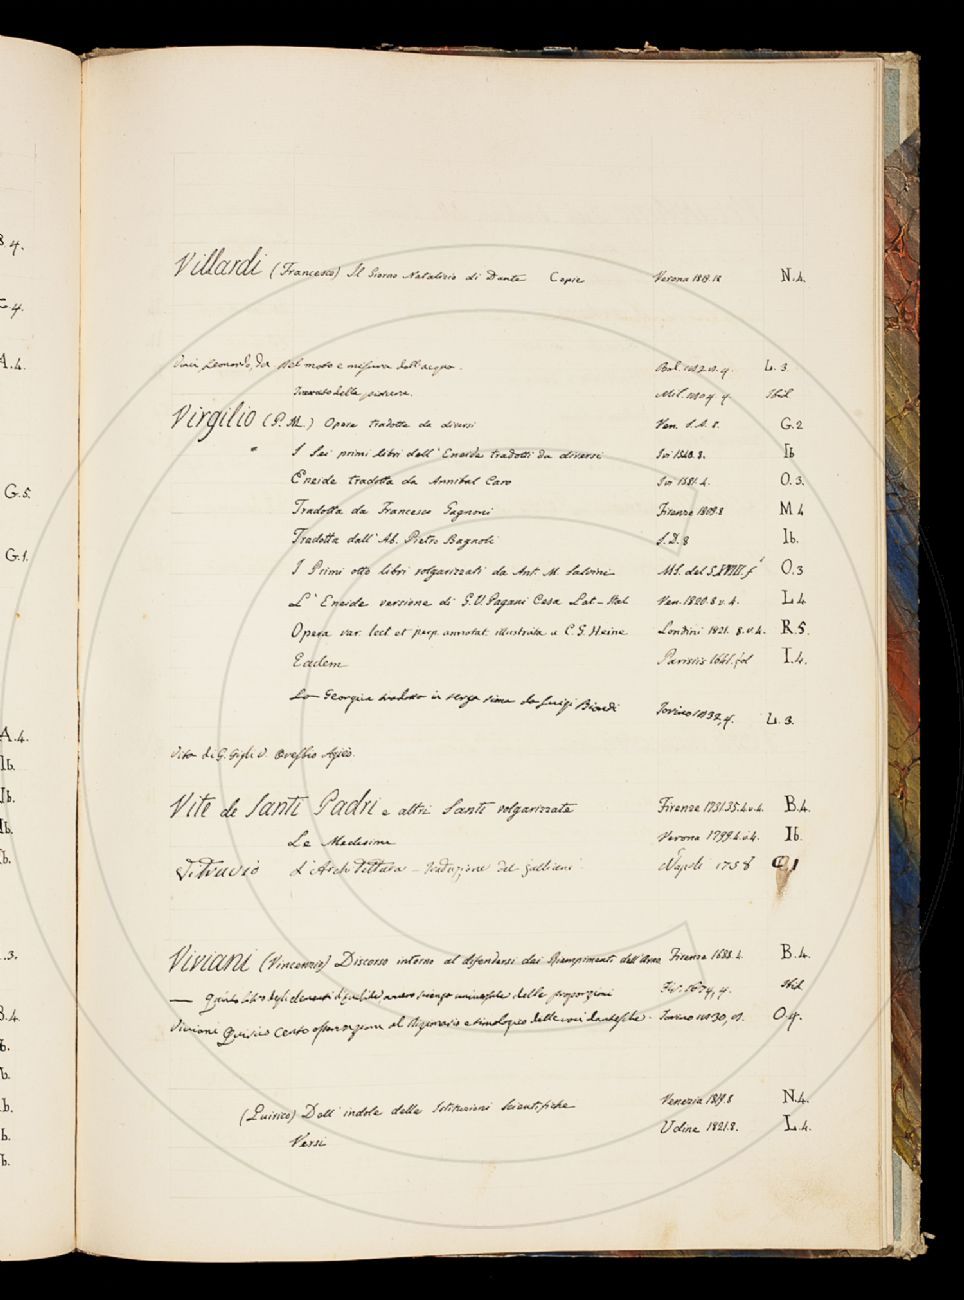 8 4.
G 4.
A.4.
G.5.
G.1.
A.4.
Ib.
Ib.
Ib.
Ib.
.3.
B.4.
Ib.
Ib.
Ib.
Ib.
Ib.
Villardi (Francesco) Il Giorno Natalizio di Dante Copie Verona 1819. 12 N.4.
Vinci, Leonardo, da Del moto e misura dell'acqua. Bol. L. 3
Trattato della pittura. Mil. 1804 4 Ibid
Virgilio (P. M.) Opere tradotte da diversi Ven. S.A. 8. G.2
" I Sei primi libri dell'Eneide tradotti da diversi Ivi 1540. 8. Ib
Eneide tradotta da Annibal Caro Ivi 1581. 4. O.3.
Tradotta da Francesco Gagnoni Firenze 1809. 8 M 4
Tradotta dall'Ab. Pietro Bagnoli S.D. 8 Ib.
I Primi otto libri volgarizzati da Ant. M. Salvini MS. del S. XVIII. f O.3
L'Eneide versione di G.V. Pagani Cesa Lat-Ital Ven. 1820. 8 v. 4. L.4
Opera var. lect et perp. annotat. illustrata a C.G. Heine Londini 1821. 8. v. 4. R.5.
Eadem Parisiis 1641. fol I.4.
La Georgica tradotta in terza rima da Luigi Biondi Torino 1832, 4. L. 3.
Vita di G. Gigli V. Oresbio Agieo.
Vite de Santi Padri e altri Santi volgarizzate Firenze 1731.35. 4. v. 4. B.4.
Le Medesime Verona 1799. 4. v. 4. Ib.
Vitruvio L'Architettura - traduzione del Galliani Napoli 1758 C.1
Viviani (Vincenzio) Discorso intorno al difendersi dai Riempimenti dell'Arno Firenze 1688. 4. B.4.
— Quinto libro degli elementi d'Euclide, ovvero scienza universale delle proporzioni Fir. 1674, 4. Ibid
Viviani Quirico Cento osservazioni al dizionario etimologico delle voci dantesche. Torino 1830, 8. O.4.
(Quirico) Dell'indole delle Istituzioni Scientifiche Venezia 1819. 8 N.4.
Versi Udine 1821. 8. L.4.